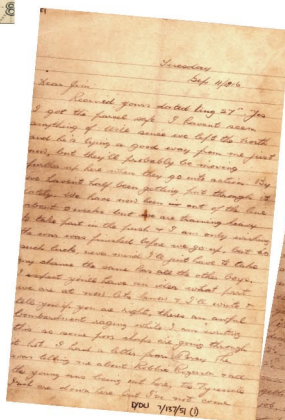 Tuesday
Sep 11/9/16
Dear Jim
Received yours dated Aug 27th Yes
I got the parcel safe. I havent seen
anything of Will since we left the North
and he's lying a good way from me just
now, but they'll probably be moving
further up here when they go into action. By
we havent half been getting put through it
lately. We have now been out of the line
about 2 weeks but are training heavy
to take part in the push & I am only wishing
the war was finished before we go up, but no
such luck never mind I'll just have to take
my chance the same like all the other boys.
I expect you have an idea what part
we are at now like lower & I'll write &
tell you if you are right, theres an awful
bombardment raging while I am writing
this so some poor chaps are going through
it hot. I had a letter from
was telling me about Robbie
the young
but not come
D/DLI 7/137/51 (1)